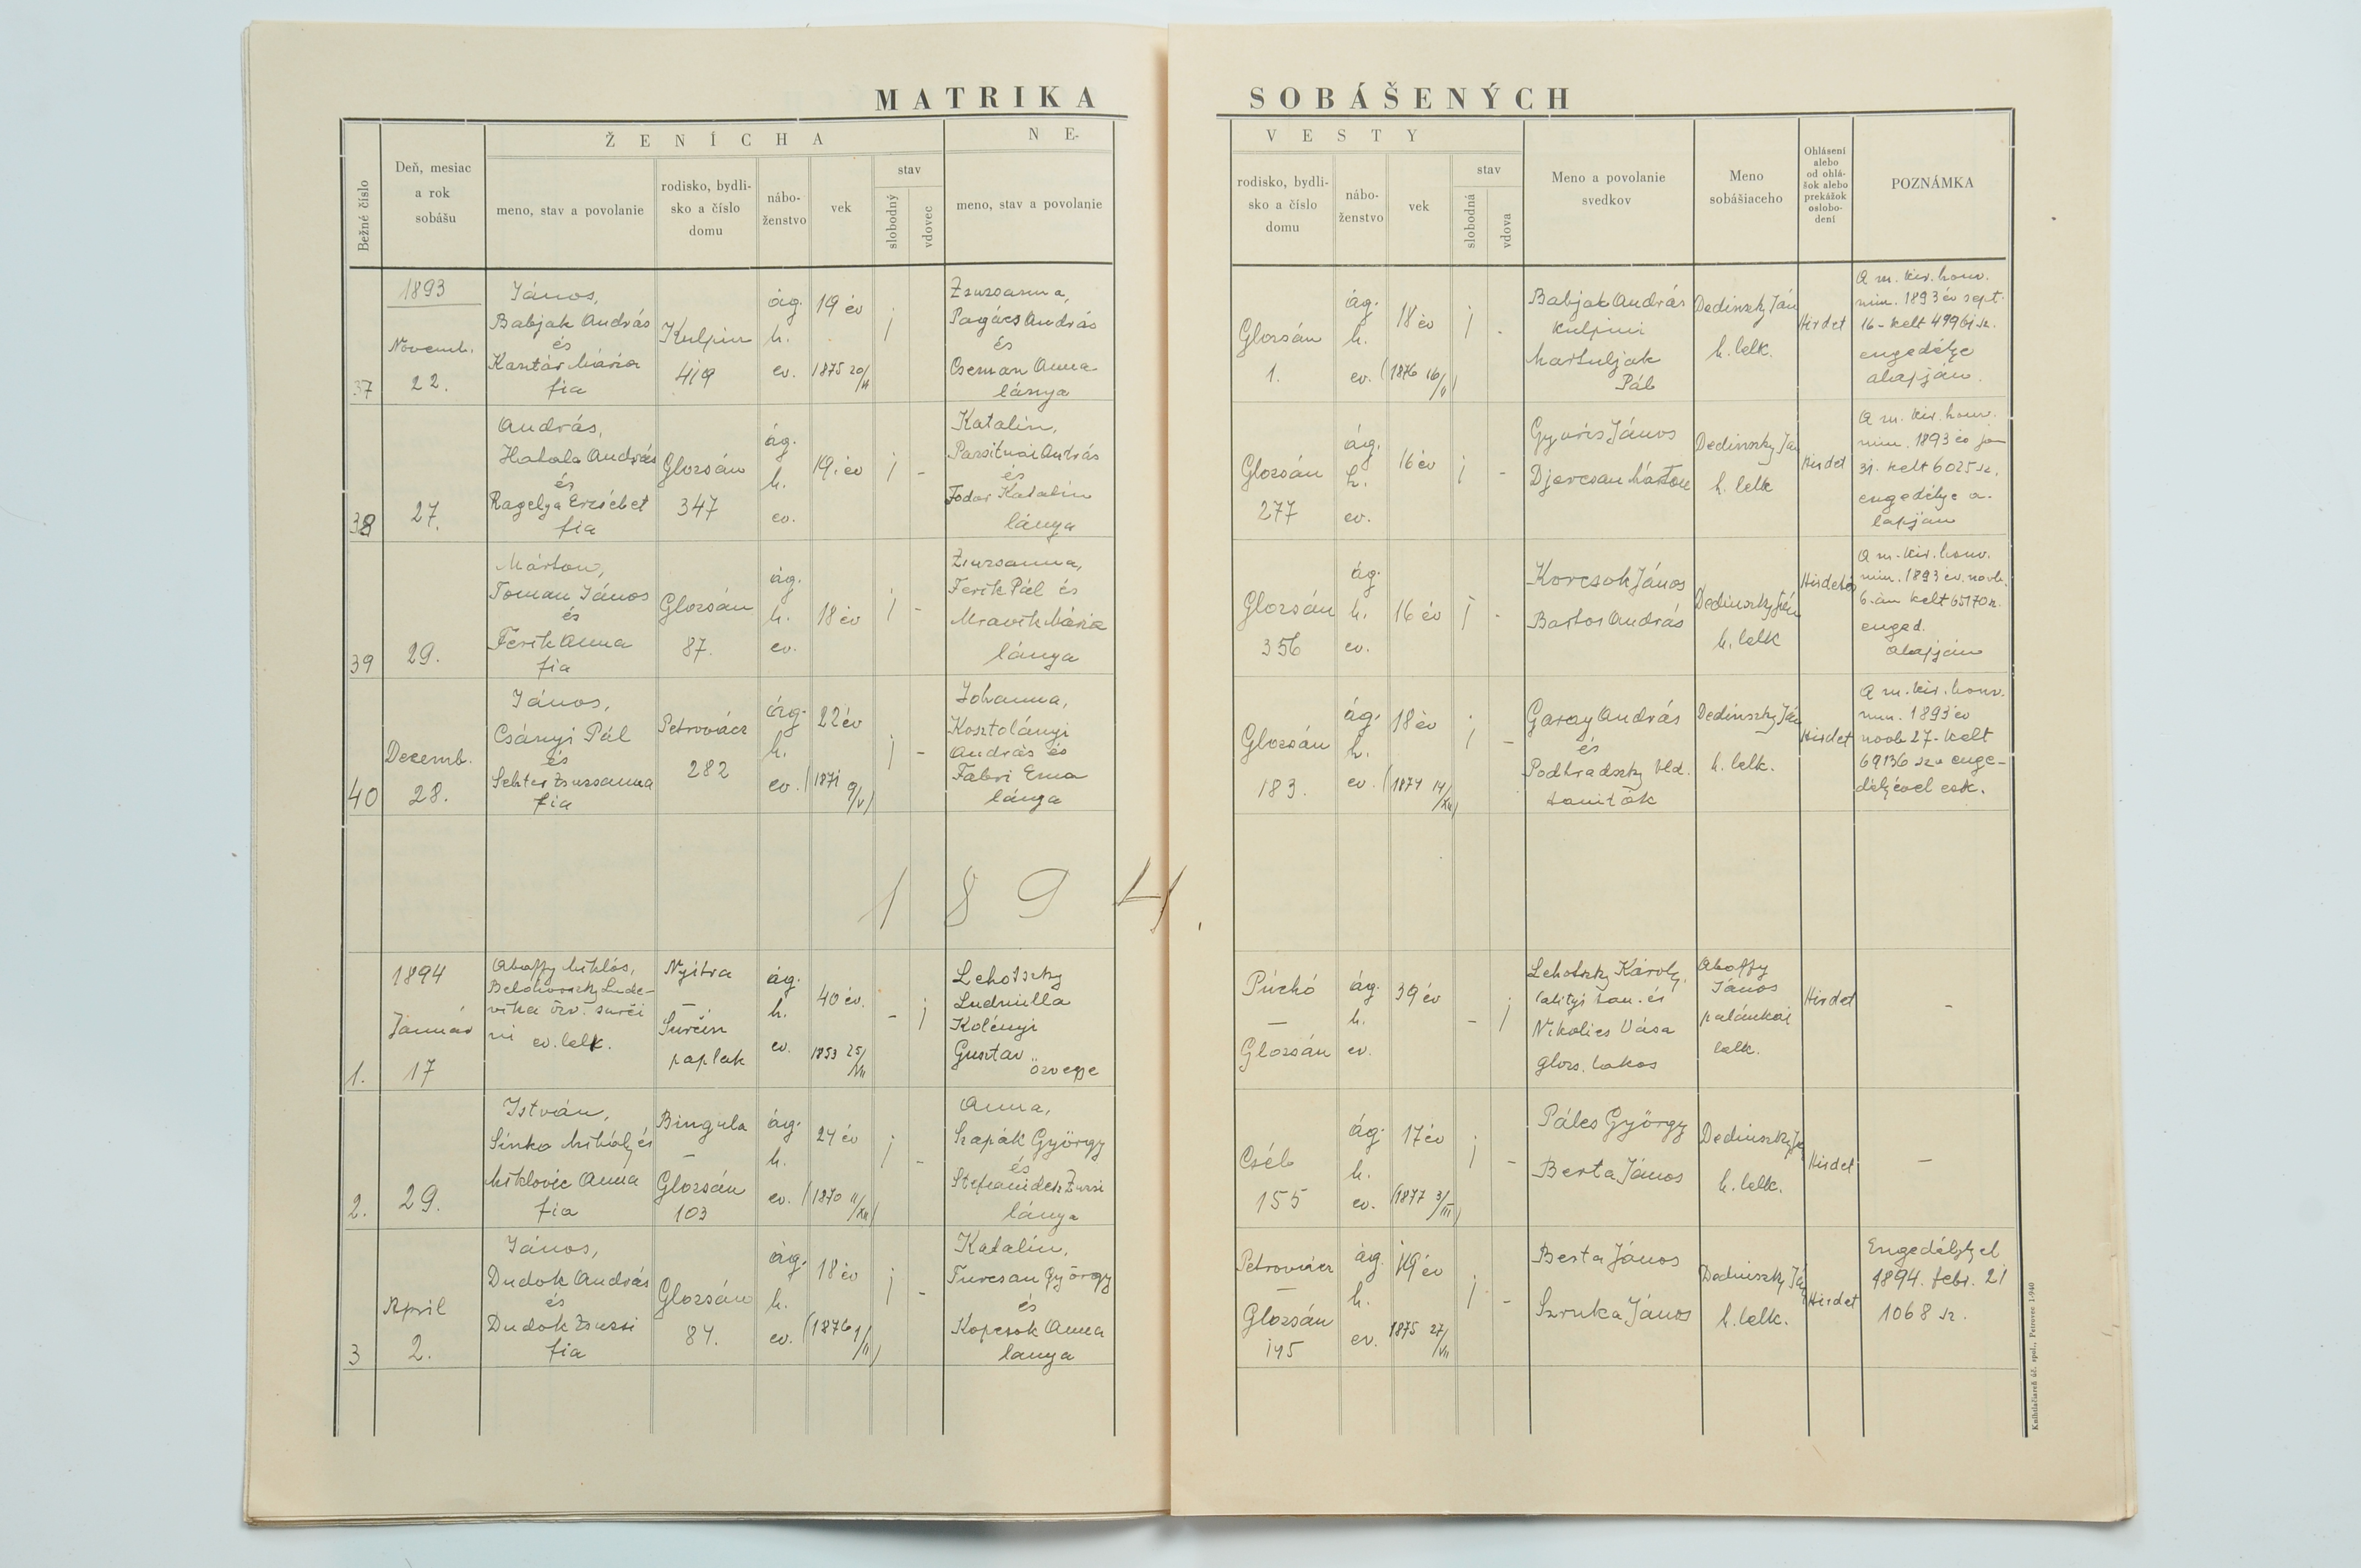 MATRIKA SOBÁŠENÝCH
Bežné číslo
Deň, mesiac
a rok
sobášu
ŽENÍCHA
meno, stav a povolanie
rodisko, bydli-
sko a číslo
domu
nábo-
ženstvo
vek
stav
slobodný
vdovec
NE-
meno, stav a povolanie
VESTY
rodisko, bydli-
sko a číslo
domu
nábo-
ženstvo
vek
stav
slobodná
vdova
Meno a povolanie
svedkov
Meno
sobášiaceho
Ohlásení
alebo
od ohlá-
šok alebo
prekážok
oslobo-
dení
POZNÁMKA
37
1893
Novemb.
22.
János,
Babjak András
és
Kantár Mária
fia
Kulpin
419
ág.
h.
ev.
19 év
1875 20/
1
Zsuzsanna,
Pagács András
és
Cseman Anna
lánya
Glozsán
1.
ág.
h.
ev.
18 év
(1876 16/II)
1
-
Babjak András
kulpini
Martuljak
Pál
Dedinszky Ján
h. lelk.
Hirdet
A m. kir. honv.
min. 1893 év sept.
16-kelt 49961 sz.
engedélye
alapján.
38
27.
András,
Hatala András
és
Ragelya Erzsébet
fia
Glozsán
347
ág.
h.
ev.
19. év
1
-
Katalin,
András
és
Fodor Katalin
lánya
Glozsán
277
ág.
h.
ev.
16 év
1
-
Gyuris János
Djovcsan Márton
Dedinszky Ján
h. lelk
Hirdet
A m. kir. honv.
min. 1893 év
31. kelt 6025 sz.
engedélye a-
lapján
39
29.
Márton,
Toman János
és
Ferik Anna
fia
Glozsán
87.
ág.
h.
ev.
18 év
1
-
Zsuzsanna,
Ferik Pál és
Mravik Mária
lánya
Glozsán
356
ág.
h.
ev.
16 év
1
-
Korcsok János
Bartos András
Dedinszky Ján
h. lelk
A m. kir. honv.
min. 1893 év. novb.
6-án kelt 65170 sz.
enged.
alapján
40
Decemb.
28.
János,
Csányi Pál
és
Sekter Zsuzsanna
fia
Petrovácz
282
ág.
h.
ev.
22 év
(1871 9/V)
1
-
Johanna,
Kosztolányi
András és
Fabri Ema
lánya
Glozsán
183.
ág.
h.
ev.
18 év
(1874 14/XII)
1
-
Garay András
és
Podhradszky Vld.
tanitók
Dedinszky Ján
h. lelk.
Hirdet
A m. kir. honv.
min. 1893 év
novb 27-kelt
69136 sz. enge-
délyével esk.
1894.
1.
1894
Január
17
Abaffy Miklós,
Belohorszky Lude-
vika özv. surči
ni ev. lelk.
Nyitra
-
Surčin
paplak
ág.
h.
ev.
40 év.
1853 25/VII
-
1
Lehotszky
Ludmilla
Kolényi
Gusztav
özvegye
Púchó
-
Glozsán
ág.
h.
ev.
39 év
-
1
Lehotszky Károly,
lalityi tan. és
Nikolics Vása
glozs. lakos
Abaffy
János
palánkai
lelk.
Hirdet
-
2.
29.
István,
Sinko Mihály és
Miklovic Anna
fia
Bingula
-
Glozsán
103
ág.
h.
ev.
24 év
(1870 11/XII)
1
-
Anna,
Szapák György
és
Stefanidesz Zsuzsi
lánya
Cséb
155
ág.
h.
ev.
17 év
(1877 3/III)
1
-
Páles György
Berta János
Dedinszky Ján
h. lelk.
Hirdet
-
3
April
2.
János,
Dudok András
és
Dudok Zsuzsi
fia
Glozsán
84.
ág.
h.
ev.
18 év
(1876 1/II)
1
-
Katalin,
Turcsan György
és
Kopcsok Anna
lanya
Petrovácz
-
Glozsán
195
ág.
h.
ev.
19 év
1875 27/VII
1
-
Berta János
Szruka János
Dedinszky Ján
h. lelk.
Hirdet
Engedélyel
1894. febr. 21
1068 sz.
Knihtlačiareň úč. spol., Petrovec 1-940